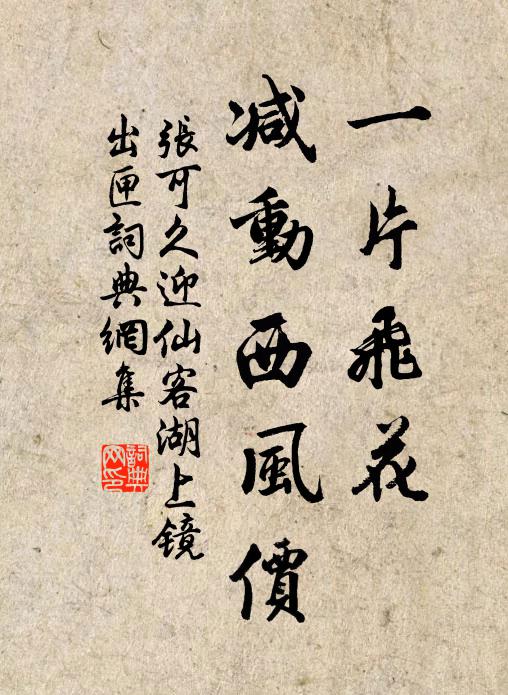 一片飛花
減動西風價
張可久迎仙客湖上鏡
出匣詞典網集
詞典网印